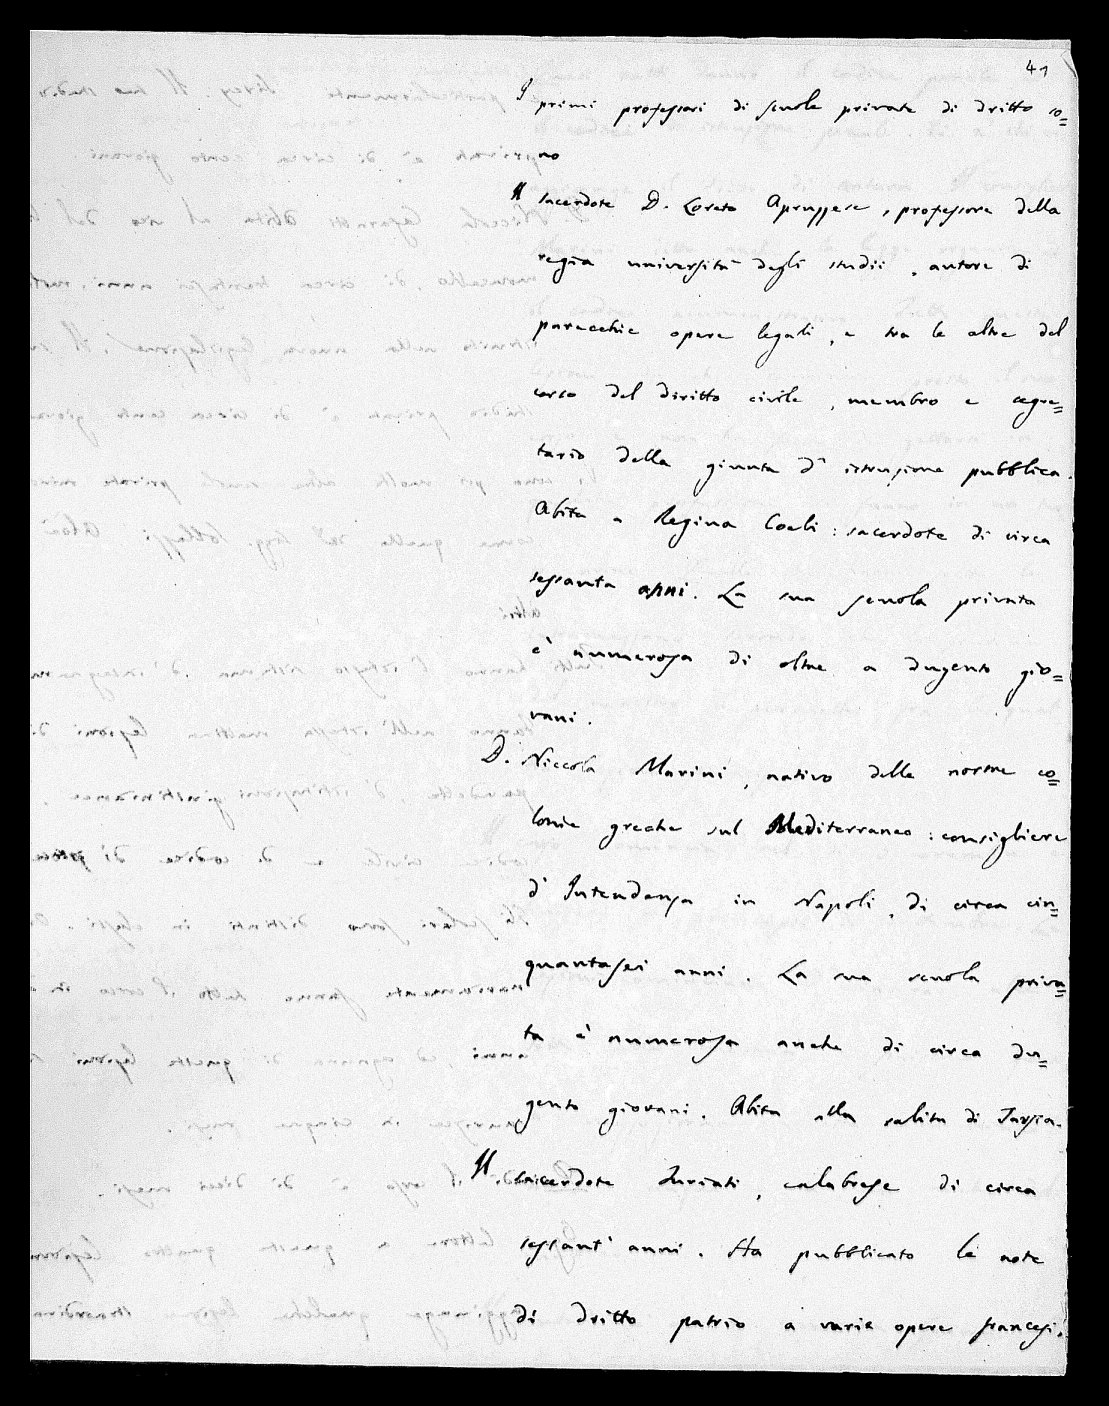 41
I primi professori di scuole private di dritto so=
no
Il sacerdote D. Loreto Apruzzese, professore della
regia università degli studii, autore di
parecchie opere legali, e tra le altre del
corso del diritto civile, membro e segre=
tario della giunta d' istruzione pubblica.
Abita a Regina Coeli: sacerdote di circa
sessanta anni. La sua scuola privata
è numerosa di oltre a dugento gio=
vani.
D. Niccola Marini, nativo delle nostre co=
lonie greche sul Mediterraneo: consigliere
d' Intendenza in Napoli, di circa cin=
quantasei anni. La sua scuola priva=
ta è numerosa anche di circa du=
gento giovani. Abita alla salita di Tarsia.
Il sacerdote Furiati, calabrese di circa
sessant' anni. Ha pubblicato le note
di dritto patrio a varie opere francesi.